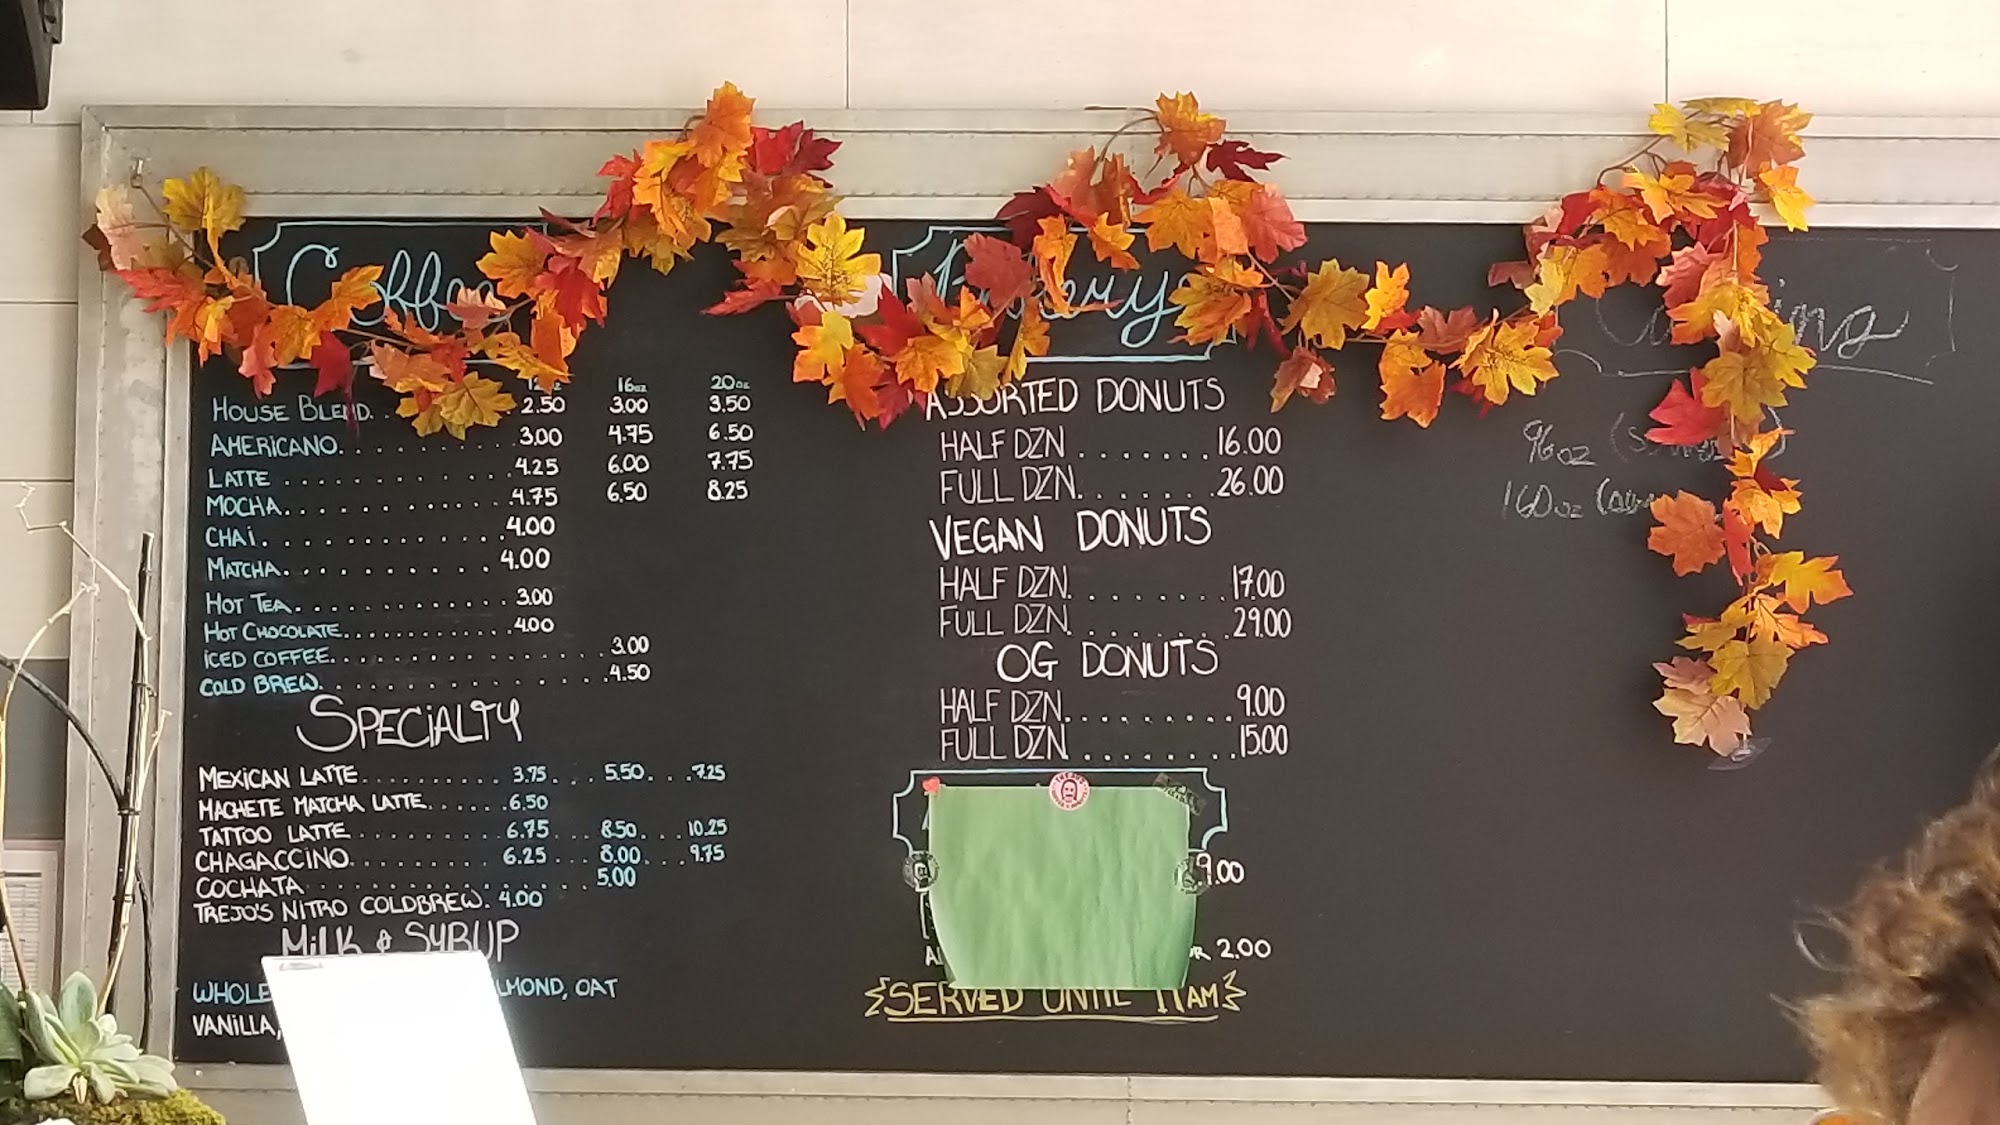 Coffee
12oz 16oz 20oz
HOUSE BLEND. 2.50 3.00 3.50
AMERICANO. 3.00 4.75 6.50
LATTE 4.25 6.00 7.75
MOCHA. 4.75 6.50 8.25
CHAI. 4.00
MATCHA. 4.00
HOT TEA. 3.00
HOT CHOCOLATE. 4.00
ICED COFFEE. 3.00
COLD BREW. 4.50
SPECIALTY
MEXICAN LATTE. 3.75 5.50 7.25
MACHETE MATCHA LATTE. 6.50
TATTOO LATTE. 6.75 8.50 10.25
CHAGACCINO. 6.25 8.00 9.75
COCHATA 5.00
TREJO'S NITRO COLDBREW. 4.00
MILK & SYRUP
WHOLE LMOND, OAT
VANILLA,
Bakery
ASSORTED DONUTS
HALF DZN 16.00
FULL DZN. 26.00
VEGAN DONUTS
HALF DZN. 17.00
FULL DZN. 29.00
OG DONUTS
HALF DZN. 9.00
FULL DZN. 15.00
9.00
2.00
SERVED UNTIL 11AM
96oz
160oz